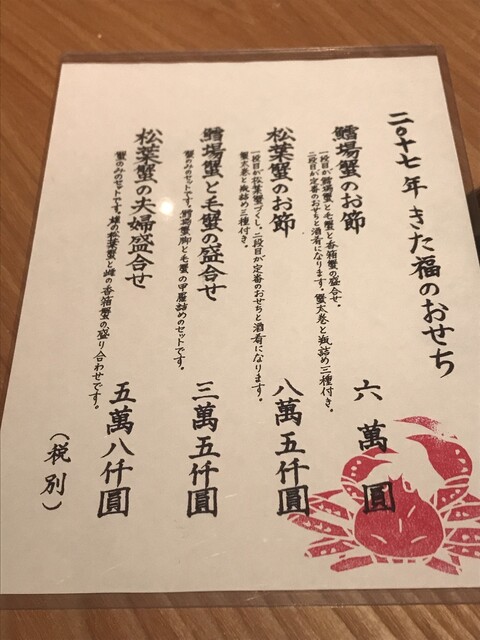 二〇十七年きた福のおせち
鱈場蟹のお節
一段目が鱈場蟹と毛蟹と香箱蟹の盛合せ。
二段目が定番のおせちと酒肴になります。蟹太巻と瓶詰め三種付き。
六萬圓
松葉蟹のお節
一段目が松葉蟹づくし。二段目が定番のおせちと酒肴になります。
蟹太巻と瓶詰め三種付き。
八萬五仟圓
鱈場蟹と毛蟹の盛合せ
蟹のみのセットです。鱈場蟹脚と毛蟹の甲羅詰めのセットです。
三萬五仟圓
松葉蟹の夫婦盛合せ
蟹のみのセットです。雄の松葉蟹と雌の香箱蟹の盛り合わせです。
五萬八仟圓
(税別)